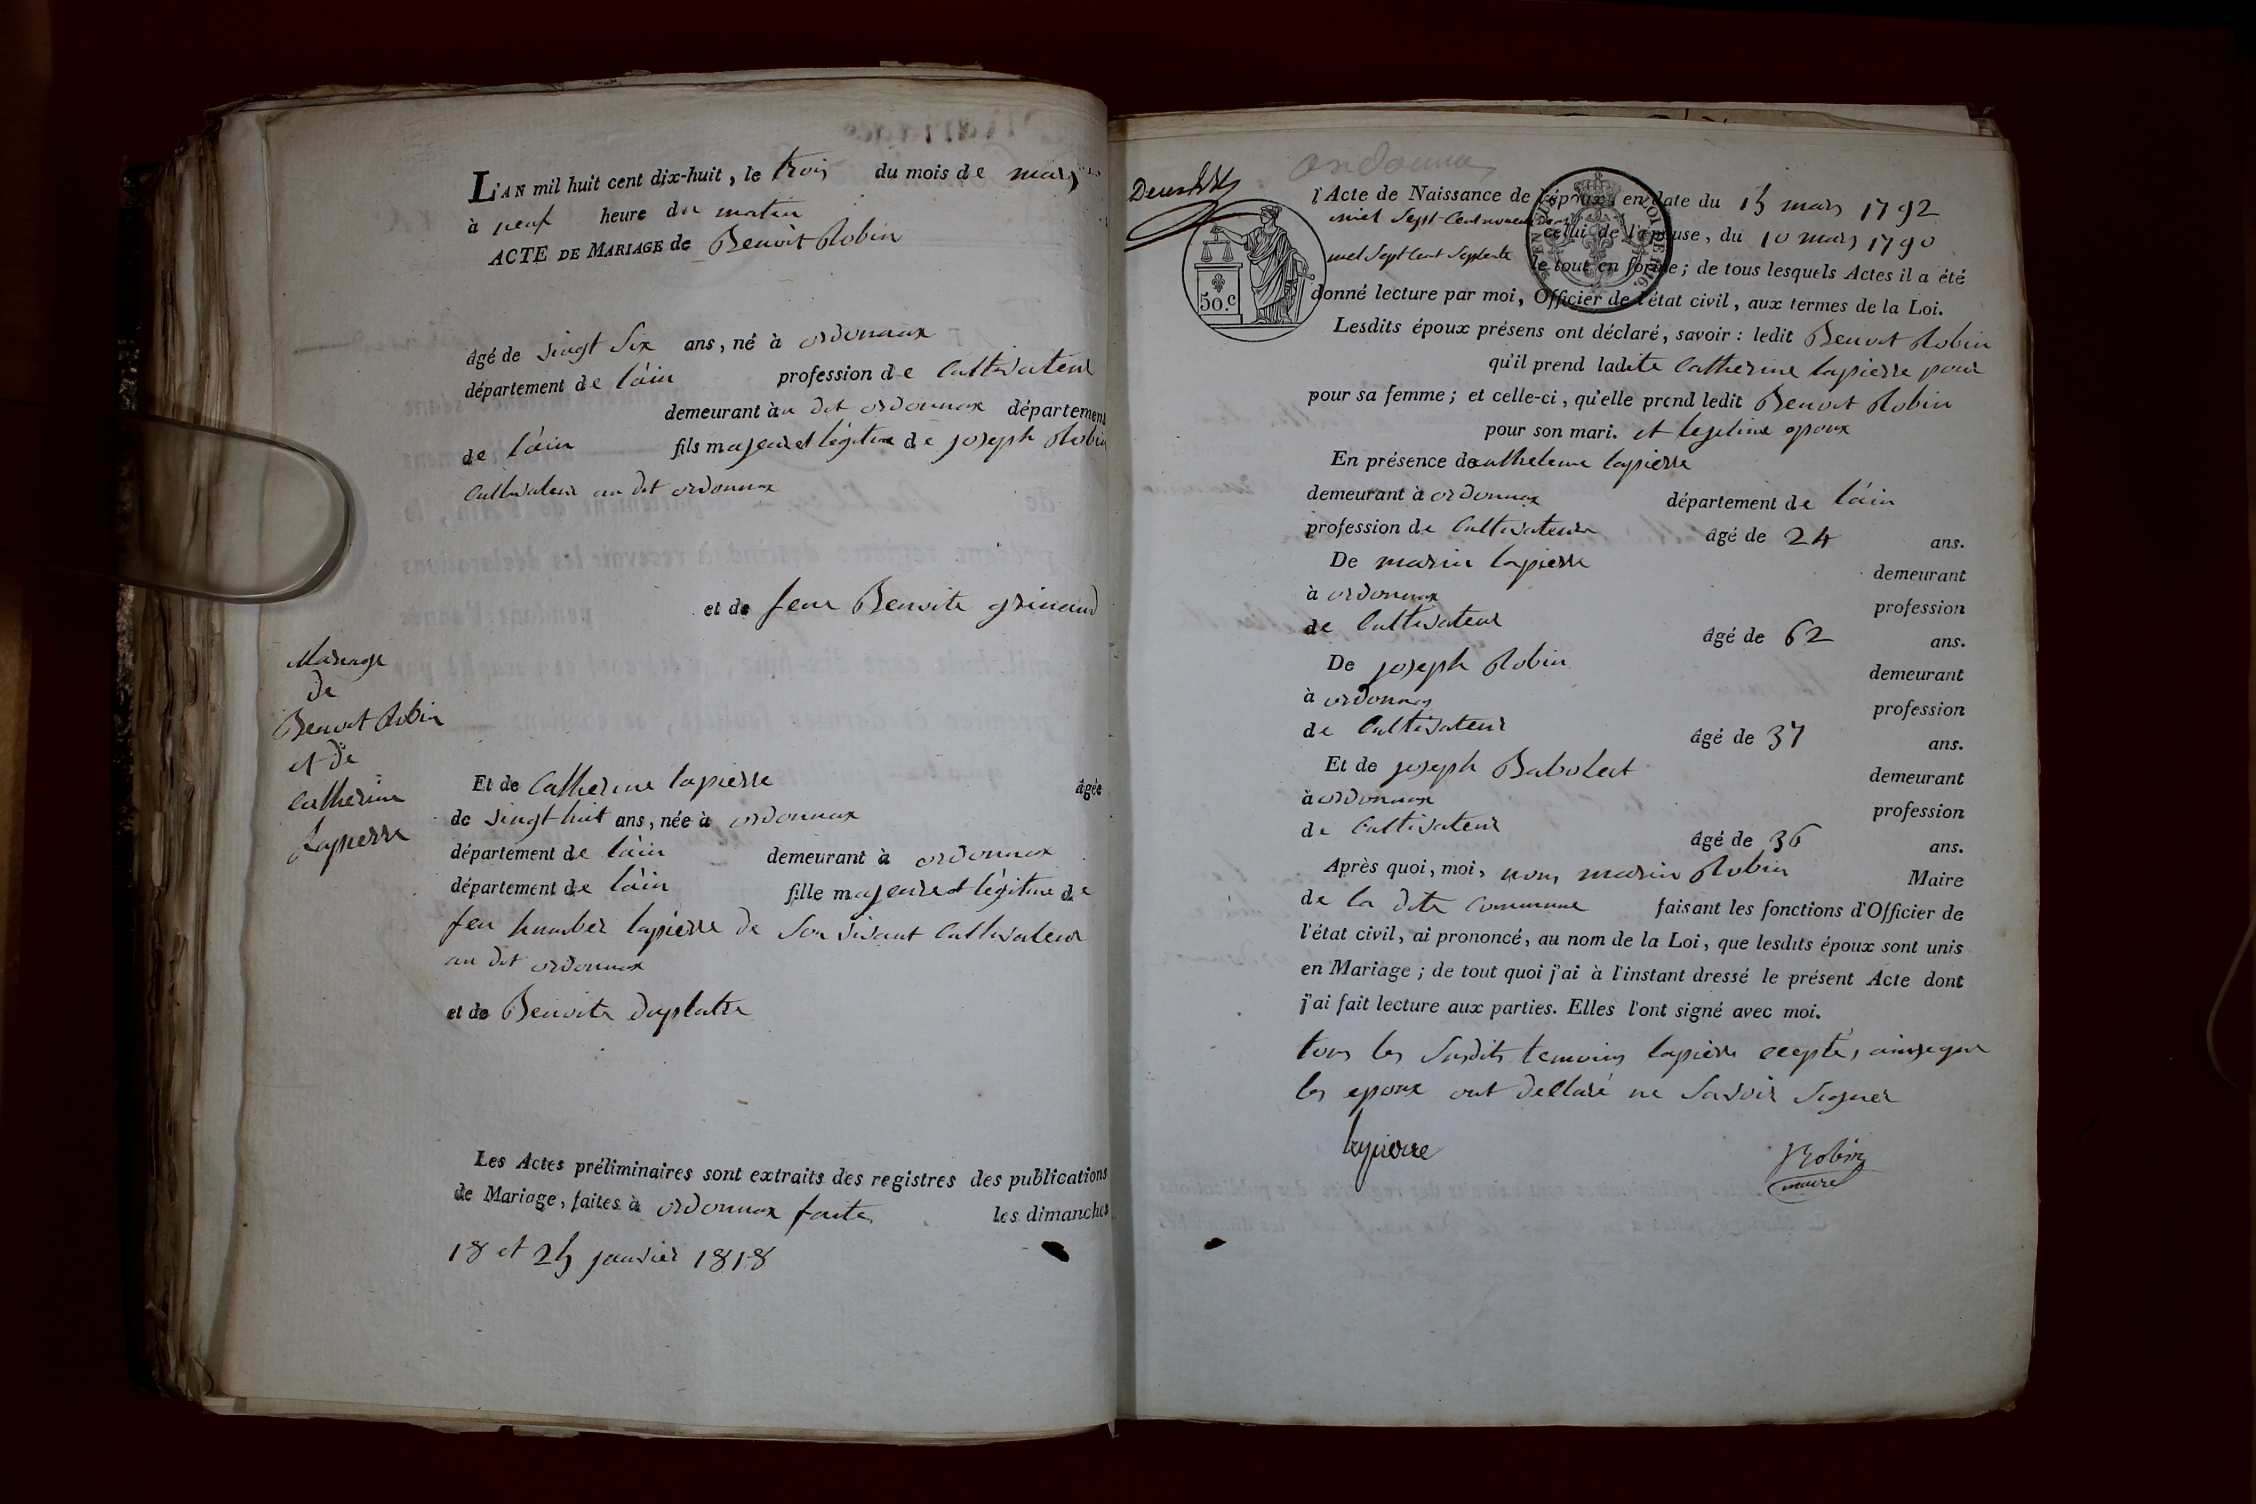 L'AN mil huit cent dix-huit, le trois du mois de mars
à neuf heure du matin
ACTE DE MARIAGE de Benoit Robin
âgé de vingt six ans, né à ordonnax
département de l'ain profession de Cultivateur
demeurant àu dit ordonnax département
de l'ain fils majeur et légitime de joseph Robin
Cultivateur au dit ordonnax
et de feue Benoite grinand
Mariage
de
Benoit Robin
et de
Catherine
Lapierre
Et de Catherine lapierre âgée
de vingt huit ans, née à ordonnax
département de l'ain demeurant à ordonnax
département de l'ain fille majeure et légitime de
feu humber lapierre de son vivant Cultivateur
au dit ordonnax
et de Benoite Duplatre
Les Actes préliminaires sont extraits des registres des publications
de Mariage, faites à ordonnax faite les dimanches
18 et 25 janvier 1818
ordonnax
l'Acte de Naissance de l'époux, en date du 15 mars 1792
miel Sept Cent
celui de l'épouse, du 10 mars 1790
miel Sept Cent Septente
le tout en forme; de tous lesquels Actes il a été
donné lecture par moi, Officier de l'état civil, aux termes de la Loi.
50.c
LOI DE 1816.
Lesdits époux présens ont déclaré, savoir: ledit Benoit Robin
qu'il prend ladite Catherine lapierre pour
pour sa femme; et celle-ci, qu'elle prend ledit Benoit Robin
pour son mari. et legitime epoux
En présence de anthelme lapierre
demeurant à ordonnax département de l'ain
profession de Cultivateur âgé de 24 ans.
De marin lapierre demeurant
à ordonnax profession
de Cultivateur âgé de 62 ans.
De joseph Robin demeurant
à ordonnax profession
de Cultivateur âgé de 37 ans.
Et de joseph Babolat demeurant
à ordonnax profession
de Cultivateur âgé de 36 ans.
Après quoi, moi, nous marin Robin Maire
de la dite Commune faisant les fonctions d'Officier de
l'état civil, ai prononcé, au nom de la Loi, que lesdits époux sont unis
en Mariage; de tout quoi j'ai à l'instant dressé le présent Acte dont
j'ai fait lecture aux parties. Elles l'ont signé avec moi.
tous les Susdits temoins lapierre eceptés, ainsique
les epoux ont declaré ne Savoir Signer
lapierre Robin
maire